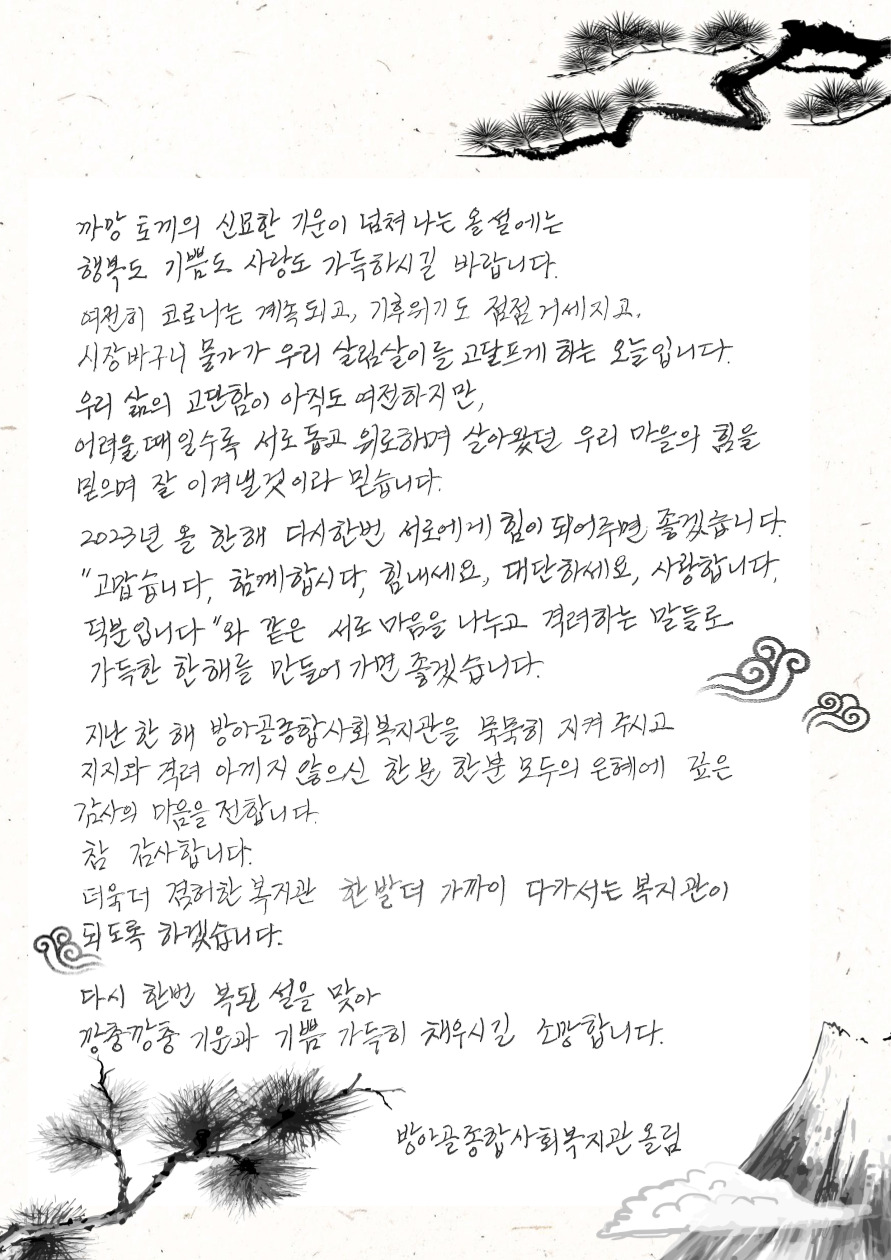 까망 토끼의 신묘한 기운이 넘쳐나는 올 설에는
행복도 기쁨도 사랑도 가득하시길 바랍니다.
여전히 코로나는 계속되고, 기후위기도 점점 거세지고,
시장바구니 물가가 우리 살림살이를 고달프게 하는 오늘입니다.
우리 삶의 고단함이 아직도 여전하지만,
어려울때일수록 서로 돕고 위로하며 살아왔던 우리 마을의 힘을
믿으며 잘 이겨낼것이라 믿습니다.
2023년 올 한해 다시한번 서로에게 힘이 되어주면 좋겠습니다.
"고맙습니다, 함께합시다, 힘내세요, 대단하세요, 사랑합니다,
덕분입니다"와 같은 서로 마음을 나누고 격려하는 말들로
가득한 한해를 만들어 가면 좋겠습니다.
지난 한 해 방아골종합사회복지관을 묵묵히 지켜 주시고
지지와 격려 아끼지 않으신 한분 한분 모두의 은혜에 깊은
감사의 마음을 전합니다.
참 감사합니다.
더욱더 겸허한 복지관 한발 더 가까이 다가서는 복지관이
되도록 하겠습니다.
다시 한번 복된 설을 맞아
깡총깡총 기운과 기쁨 가득히 채우시길 소망합니다.
방아골종합사회복지관 올림